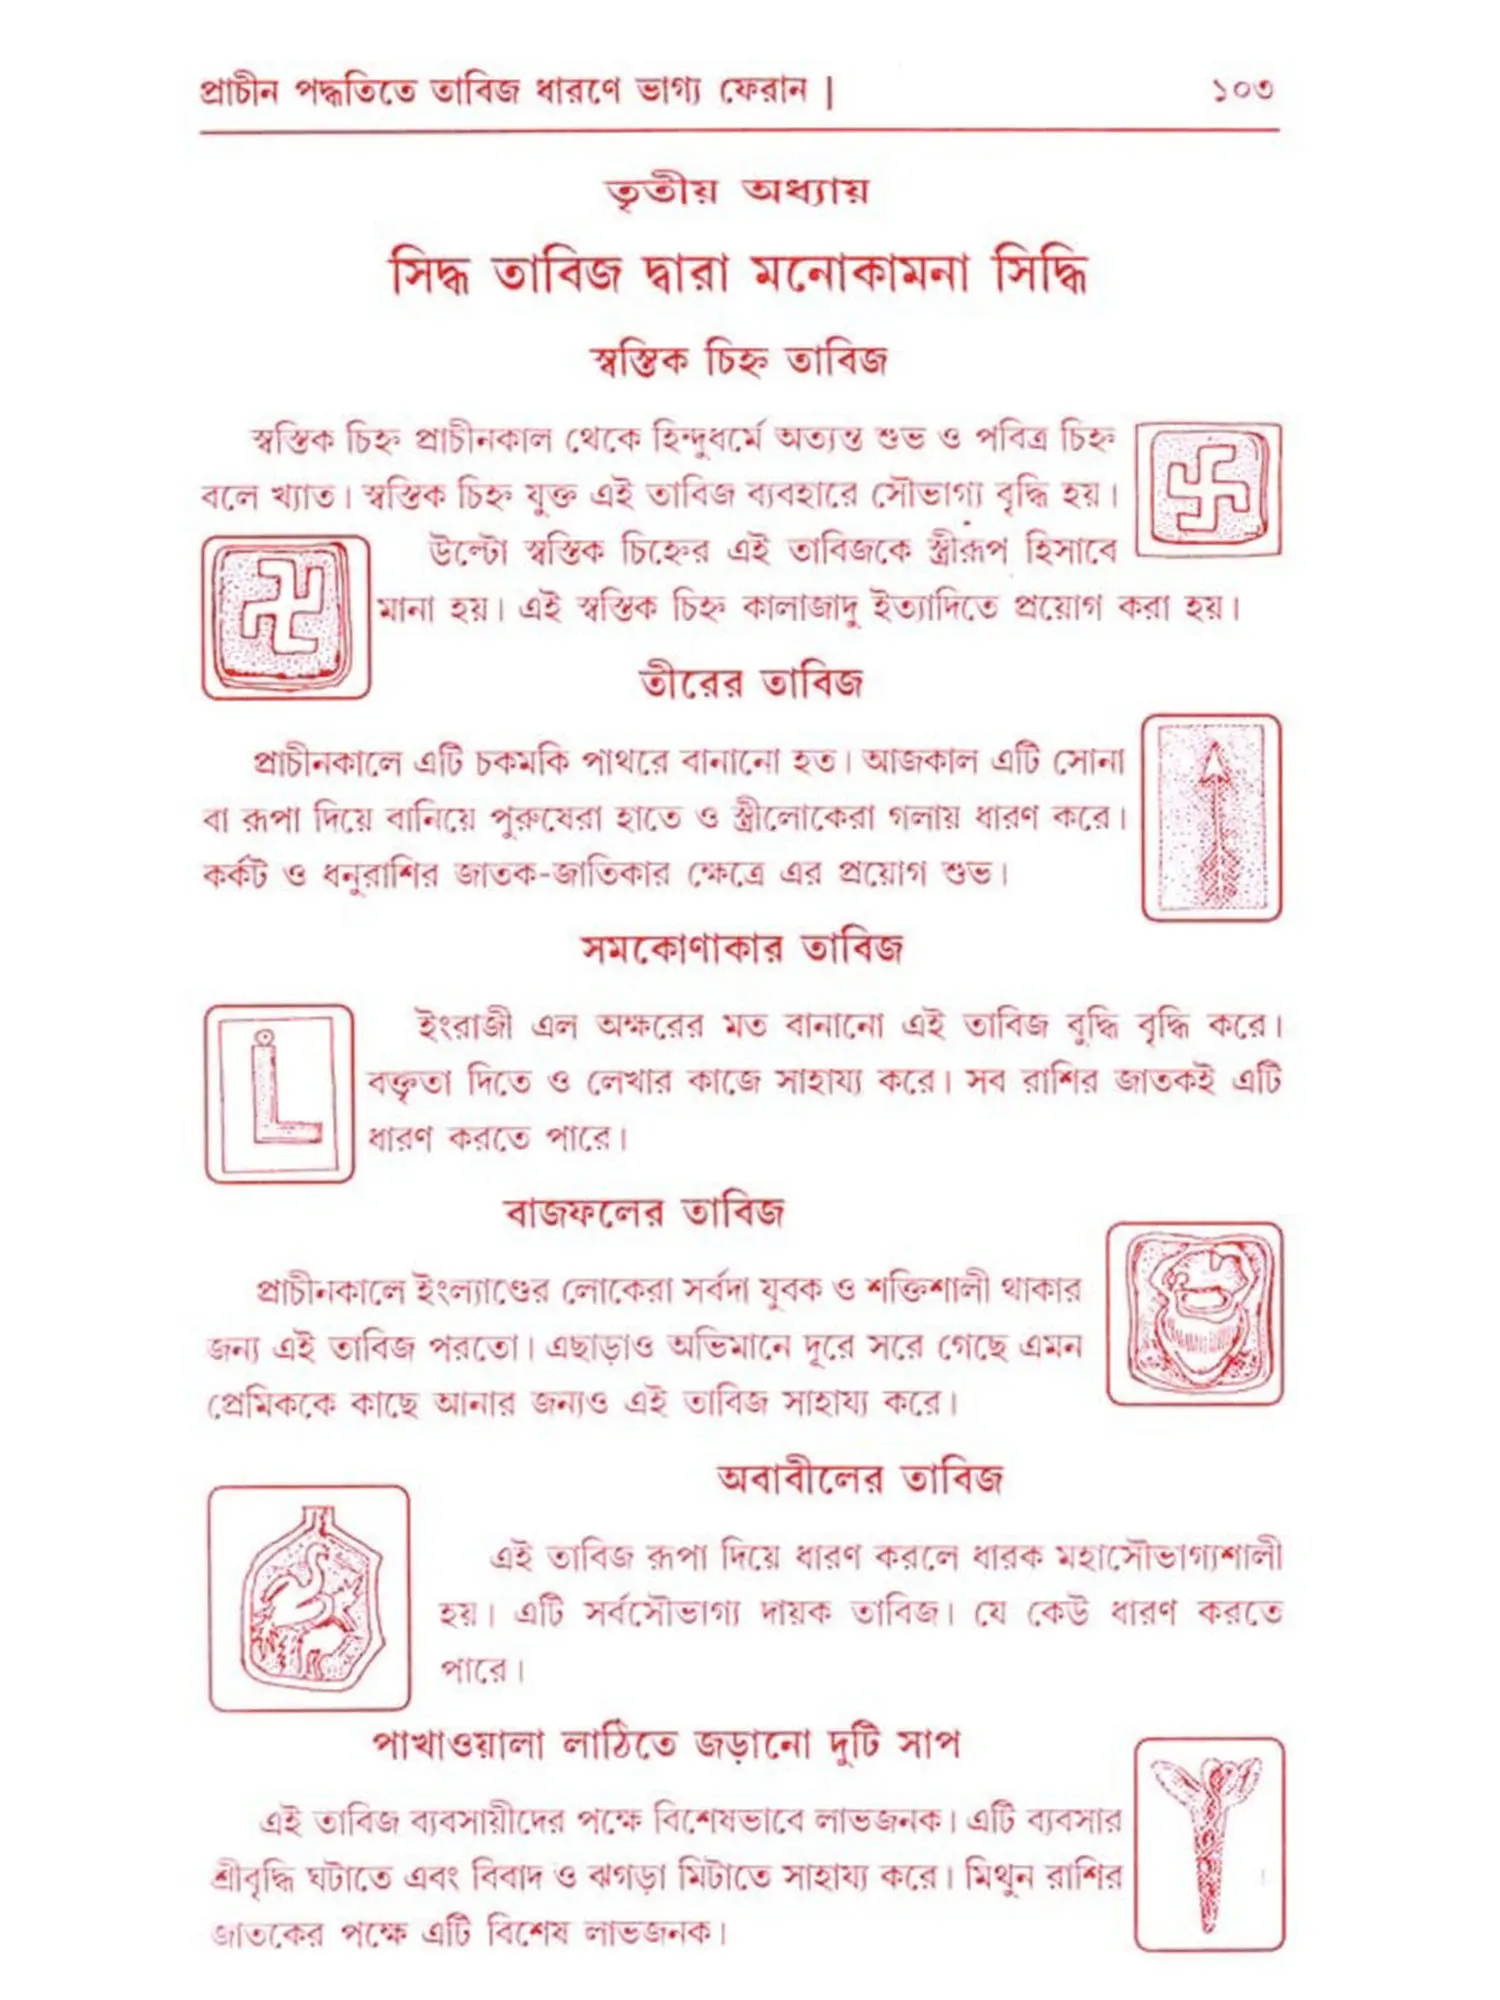 প্রাচীন পদ্ধতিতে তাবিজ ধারণে ভাগ্য ফেরান | ১০৩
তৃতীয় অধ্যায়
সিদ্ধ তাবিজ দ্বারা মনোকামনা সিদ্ধি
স্বস্তিক চিহ্ন তাবিজ
স্বস্তিক চিহ্ন প্রাচীনকাল থেকে হিন্দুধর্মে অত্যন্ত শুভ ও পবিত্র চিহ্ন
বলে খ্যাত। স্বস্তিক চিহ্ন যুক্ত এই তাবিজ ব্যবহারে সৌভাগ্য বৃদ্ধি হয়।
উল্টো স্বস্তিক চিহ্নের এই তাবিজকে স্ত্রীরূপ হিসাবে
মানা হয়। এই স্বস্তিক চিহ্ন কালাজাদু ইত্যাদিতে প্রয়োগ করা হয়।
তীরের তাবিজ
প্রাচীনকালে এটি চকমকি পাথরে বানানো হত। আজকাল এটি সোনা
বা রূপা দিয়ে বানিয়ে পুরুষেরা হাতে ও স্ত্রীলোকেরা গলায় ধারণ করে।
কর্কট ও ধনুরাশির জাতক-জাতিকার ক্ষেত্রে এর প্রয়োগ শুভ।
সমকোণাকার তাবিজ
ইংরাজী এল অক্ষরের মত বানানো এই তাবিজ বুদ্ধি বৃদ্ধি করে।
বক্তৃতা দিতে ও লেখার কাজে সাহায্য করে। সব রাশির জাতকই এটি
ধারণ করতে পারে।
বাজফলের তাবিজ
প্রাচীনকালে ইংল্যাণ্ডের লোকেরা সর্বদা যুবক ও শক্তিশালী থাকার
জন্য এই তাবিজ পরতো। এছাড়াও অভিমানে দূরে সরে গেছে এমন
প্রেমিককে কাছে আনার জন্যও এই তাবিজ সাহায্য করে।
অবাবীলের তাবিজ
এই তাবিজ রূপা দিয়ে ধারণ করলে ধারক মহাসৌভাগ্যশালী
হয়। এটি সর্বসৌভাগ্য দায়ক তাবিজ। যে কেউ ধারণ করতে
পারে।
পাখাওয়ালা লাঠিতে জড়ানো দুটি সাপ
এই তাবিজ ব্যবসায়ীদের পক্ষে বিশেষভাবে লাভজনক। এটি ব্যবসার
শ্রীবৃদ্ধি ঘটাতে এবং বিবাদ ও ঝগড়া মিটাতে সাহায্য করে। মিথুন রাশির
জাতকের পক্ষে এটি বিশেষ লাভজনক।